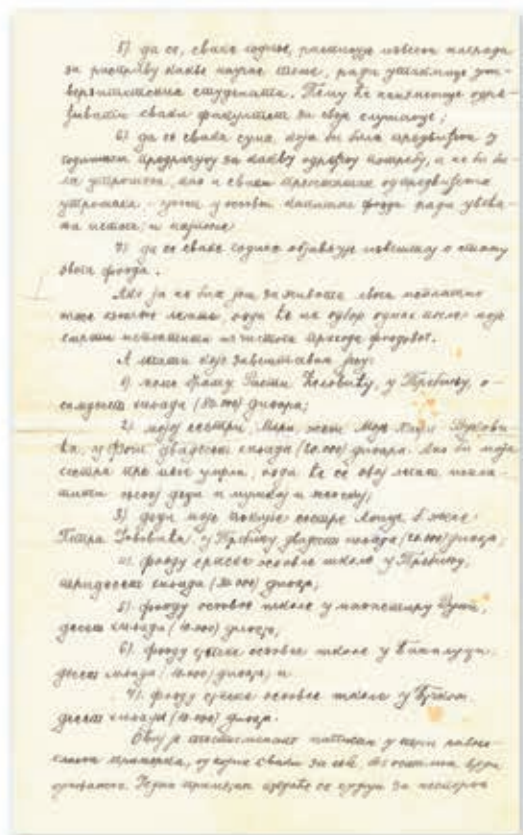 5) да се, сваке године, расписује извесна награда
за расправу какве научне теме, ради утакмице уни-
верзитетских студената. Тему ће наизменице одре-
ђивати сваки факултет за своје слушаоце;
6) да се свака сума, која би била предвиђена у
годишњем предрачуну за какву одређену потребу, а не би би-
ла утрошена, као и сваки претекак од предвиђених
утрошака - уноси у основни капитал фонда ради увећа-
ња истога; и најпосле
7) да се сваке године објављује извештај о стању
овога фонда.
Ако ја не бих још за живота свога исплатио
ниже казате легате, онда ће их одбор одмах после моје
смрти исплатити из чистога прихода фондовог.
А легати које завештавам јесу:
1) моме брату Ристи, у Требињу, о-
самдесет хиљада (80.000) динара;
2) мојој сестри Мари, жени
у двадесет хиљада (20.000) динара. Ако би моја
сестра пре мене умрла, онда ће се овај легат испла-
тити њеној деци и мушкој и женској;
3) деци моје покојне сестре
Петра у Требињу двадесет хиљада (20.000) динара;
4) фонду српске основне школе у Требињу,
тридесет хиљада (30.000) динара;
5) фонду основне школе у манастиру
десет хиљада (10.000) динара;
6) фонду српске основне школе у
десет хиљада (10.000) динара; и
7) фонду српске основне школе у
десет хиљада (10.000) динара.
Овај је тестаменат написан у равно-
гласна примерка, од којих сваки за себе
Један примерак се за